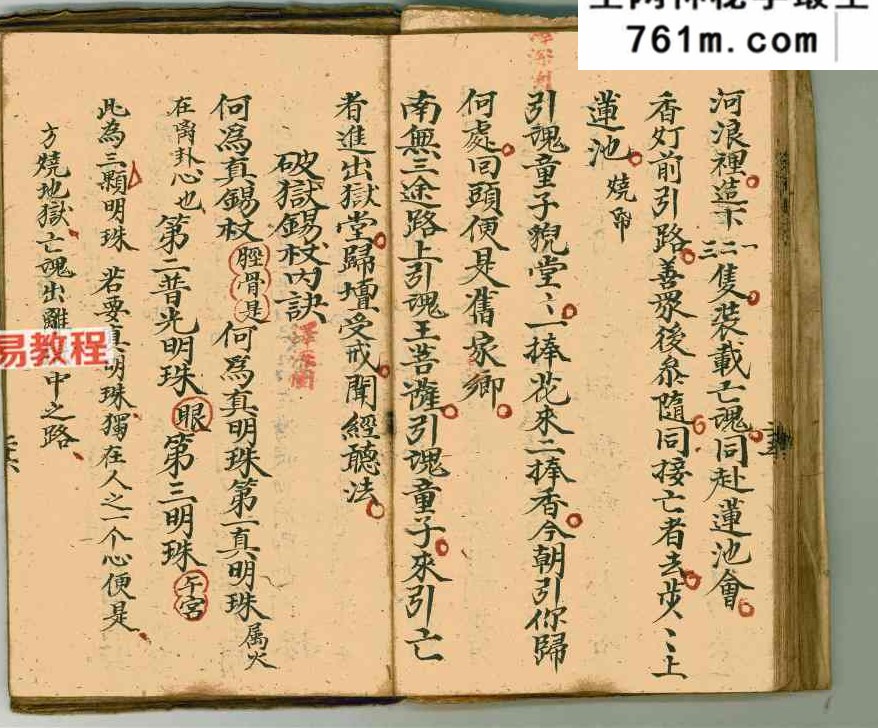 761m.com
河浪裡造下一二三隻裝載亡魂同赴蓮池會
香灯前引路善眾後叅隨同接亡者去步〻上
蓮池 燒
引魂童子貌堂〻一捧花来二捧香今朝引你歸
何處回頭便是舊家鄉
南無三途路上引魂王菩薩引魂童子來引亡
者進出獄堂歸壇受戒聞經聽法
破獄錫杖内訣
何爲真錫杖脛骨是何爲真明珠第一真明珠属火
在离卦心也第二普光明珠眼第三明珠午宮
此為三顆明珠若要真明珠獨在人之一个心便是
方燒地獄亡魂出離中之路
易教程